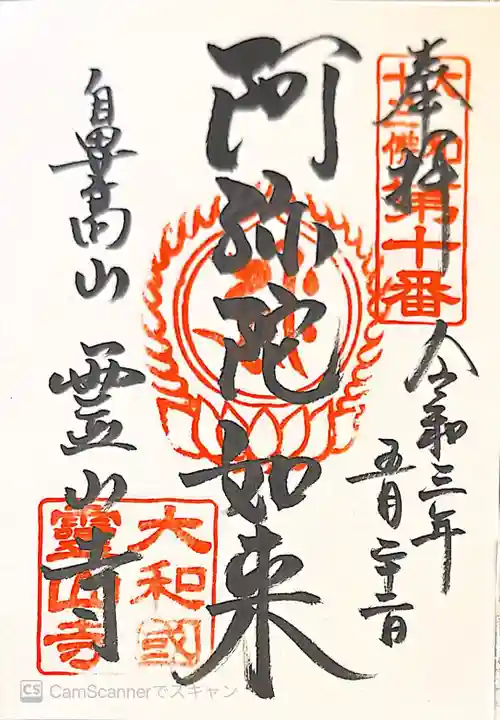 奉拝
大和
十三佛第十番
令和三年
五月二十二日
阿弥陀如来
鼻高山 霊山寺
大和國
靈山寺
CS CamScannerでスキャン